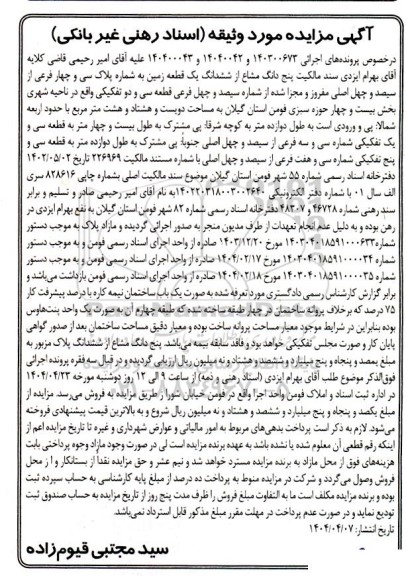 آگهی مزایده مورد وثیقه (اسناد رهنی غیر بانکی)
درخصوص پرونده‌های اجرائی ۱۴۰۳۰۰۶۷۳ و ۱۴۰۴۰۰۴۲ و ۱۴۰۴۰۰۰۴۳ علیه آقای امیر رحیمی قاضی کلایه
آقای بهرام ایزدی سند مالکیت پنج دانگ مشاع از ششدانگ یک قطعه زمین به شماره پلاک سی و چهار فرعی از
سیصد و چهل اصلی مفروز و مجزا شده از شماره سیصد و چهل فرعی قطعه سی و دو تفکیکی واقع در ناحیه شهری
بخش بیست و چهار حوزه سبزی فومن استان گیلان به مساحت دویست و هشتاد و هشت متر مربع با حدود اربعه
شمالا: پی و ورودی است به طول دوازده متر به کوچه شرقا: پی مشترک به طول بیست و چهار متر به قطعه سی و
یک تفکیکی شماره سی و سه فرعی از سیصد و چهل اصلی جنوبا: پی مشترک به طول دوازده متر به قطعه سی و
پنج تفکیکی شماره سی و هفت فرعی از سیصد و چهل اصلی با شماره مستند مالکیت ۲۲۶۹۶۹ تاریخ ۱۴۰۲/۰۵/۰۲
دفترخانه اسناد رسمی شماره ۵۵ شهر فومن استان گیلان موضوع سند مالکیت اصلی بشماره چاپی ۸۲۸۶۱۶ سری
الف سال ۰۱ با شماره دفتر الکترونیکی ۱۴۰۲۲۰۳۱۸۰۰۳۰۰۲۶۴۰ به نام آقای امیر رحیمی صادر و تسلیم و برابر
سند رهنی شماره ۴۷۲۸ و ۴۸۳۰ دفترخانه اسناد رسمی شماره ۸۲ شهر فومن استان گیلان به نفع بهرام ایزدی در
رهن بوده و به دلیل عدم انجام تعهدات از طرف مدیون منجر به صدور اجرائی گردیده و مازاد پلاک به موجب دستور
شماره ۱۴۰۳۰۴۰۱۸۵۹۱۰۰۰۶۳۳ مورخ ۱۴۰۳/۱۲/۲۰ صادره از واحد اجرای اسناد رسمی فومن و به موجب دستور
شماره ۱۴۰۴۰۴۰۱۸۵۹۱۰۰۰۰۳۴ مورخ ۱۴۰۴/۰۲/۱۷ صادره از واحد اجرای اسناد رسمی فومن و به موجب دستور
شماره ۱۴۰۴۰۴۰۱۸۵۹۱۰۰۰۰۳۵ مورخ ۱۴۰۴/۰۲/۱۸ صادره از واحد اجرای اسناد رسمی فومن بازداشت می‌باشد و
برابر گزارش کارشناس رسمی دادگستری مورد تعرفه شده به صورت یک باب ساختمان نیمه کاره با درصد پیشرفت کار
۷۵ درصد که برخلاف پروانه ساختمان در چهار طبقه ساخته شده که طبقه چهارم آن به صورت یک واحد پنت‌هاوس
بوده بنابراین در شرایط موجود معیار مساحت پروانه ساخت بوده و معیار دقیق مساحت ساختمان بعد از صدور گواهی
پایان کار و صورت مجلس تفکیکی خواهد بود و فاقد سابقه بیمه می‌باشد. پنج دانگ مشاع از ششدانگ پلاک مزبور به
مبلغ یکصد و پنجاه و پنج میلیارد و ششصد و هشتاد و نه میلیون ریال ارزیابی گردیده و در قبال سه فقره پرونده اجرائی
فوق‌الذکر موضوع طلب آقای بهرام ایزدی (اسناد رهنی و ذمه) از ساعت ۹ الی ۱۲ روز دوشنبه مورخه ۱۴۰۴/۰۴/۲۳
در اداره ثبت اسناد و املاک فومن واحد اجرا واقع در فومن خیابان شورا از طریق مزایده به فروش می‌رسد. مزایده از
مبلغ یکصد و پنجاه و پنج میلیارد و ششصد و هشتاد و نه میلیون ریال شروع و به بالاترین قیمت پیشنهادی فروخته
می‌شود. لازم به ذکر است پرداخت بدهی‌های مربوط به امور مالیاتی و عوارض شهرداری و غیره تا تاریخ مزایده اعم از
اینکه رقم قطعی آن معلوم شده یا نشده باشد به عهده برنده مزایده است لی در صورت وجود مازاد وجوه پرداختی بابت
هزینه‌های فوق از محل مازاد به برنده مزایده مسترد خواهد شد و نیم عشر و حق مزایده نقداً از بستانکار و از محل
فروش وصول می‌گردد و شرکت در مزایده منوط به پرداخت ده درصد از مبلغ پایه کارشناسی به حساب سپرده ثبت
بوده و برنده مزایده مکلف است ما به التفاوت مبلغ فروش را ظرف مدت پنج روز از تاریخ مزایده به حساب صندوق ثبت
تودیع نماید و در صورت عدم پرداخت در مهلت مقرر مبلغ مذکور قابل استرداد نمی‌باشد.
تاریخ انتشار: ۱۴۰۴/۰۴/۰۷
سید مجتبی قیوم‌زاده